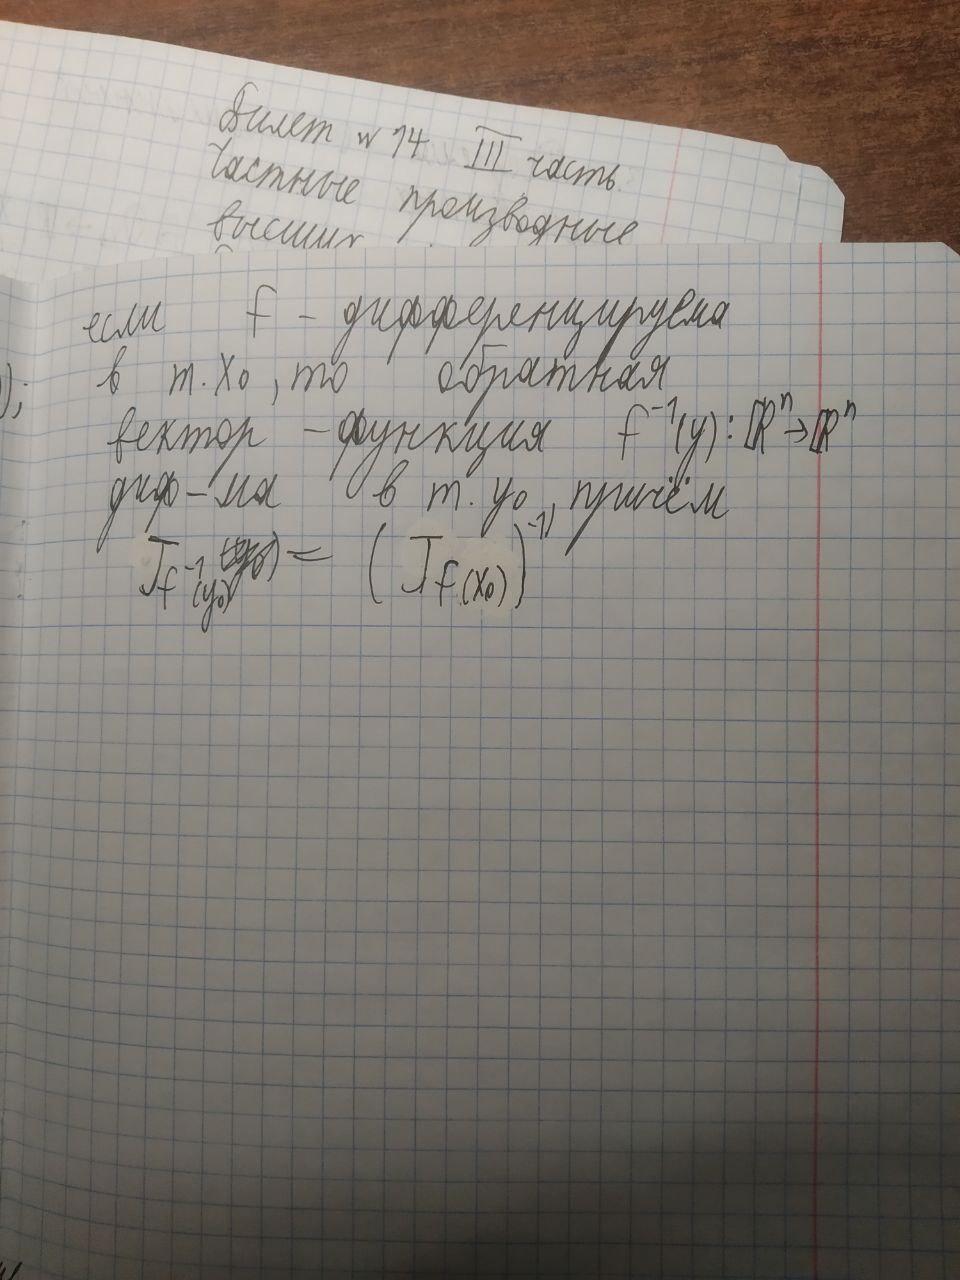 Билет № 14 III часть
Частные производные
высших
если f - дифференцируема
);
в т. x₀, то обратная
вектор - функция f⁻¹(y): ℝⁿ → ℝⁿ
диф-ма в т. y₀, причём
J f⁻¹(y₀) = (J f(x₀))⁻¹